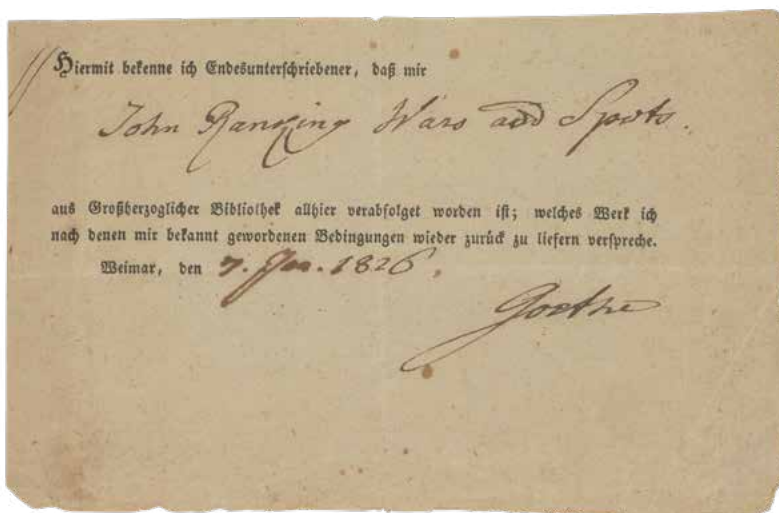 Hiermit bekenne ich Endesunterschriebener, daß mir
John Ranking Wars and Sports.
aus Großherzoglicher Bibliothek allhier verabfolget worden ist; welches Werk ich
nach denen mir bekannt gewordenen Bedingungen wieder zurück zu liefern verspreche.
Weimar, den 7. 1826.
Goethe